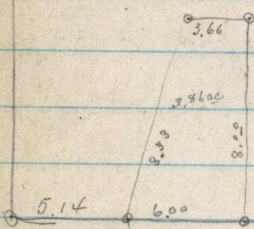 3.66
3.86 ac
8.33
8.00
5.14
6.00